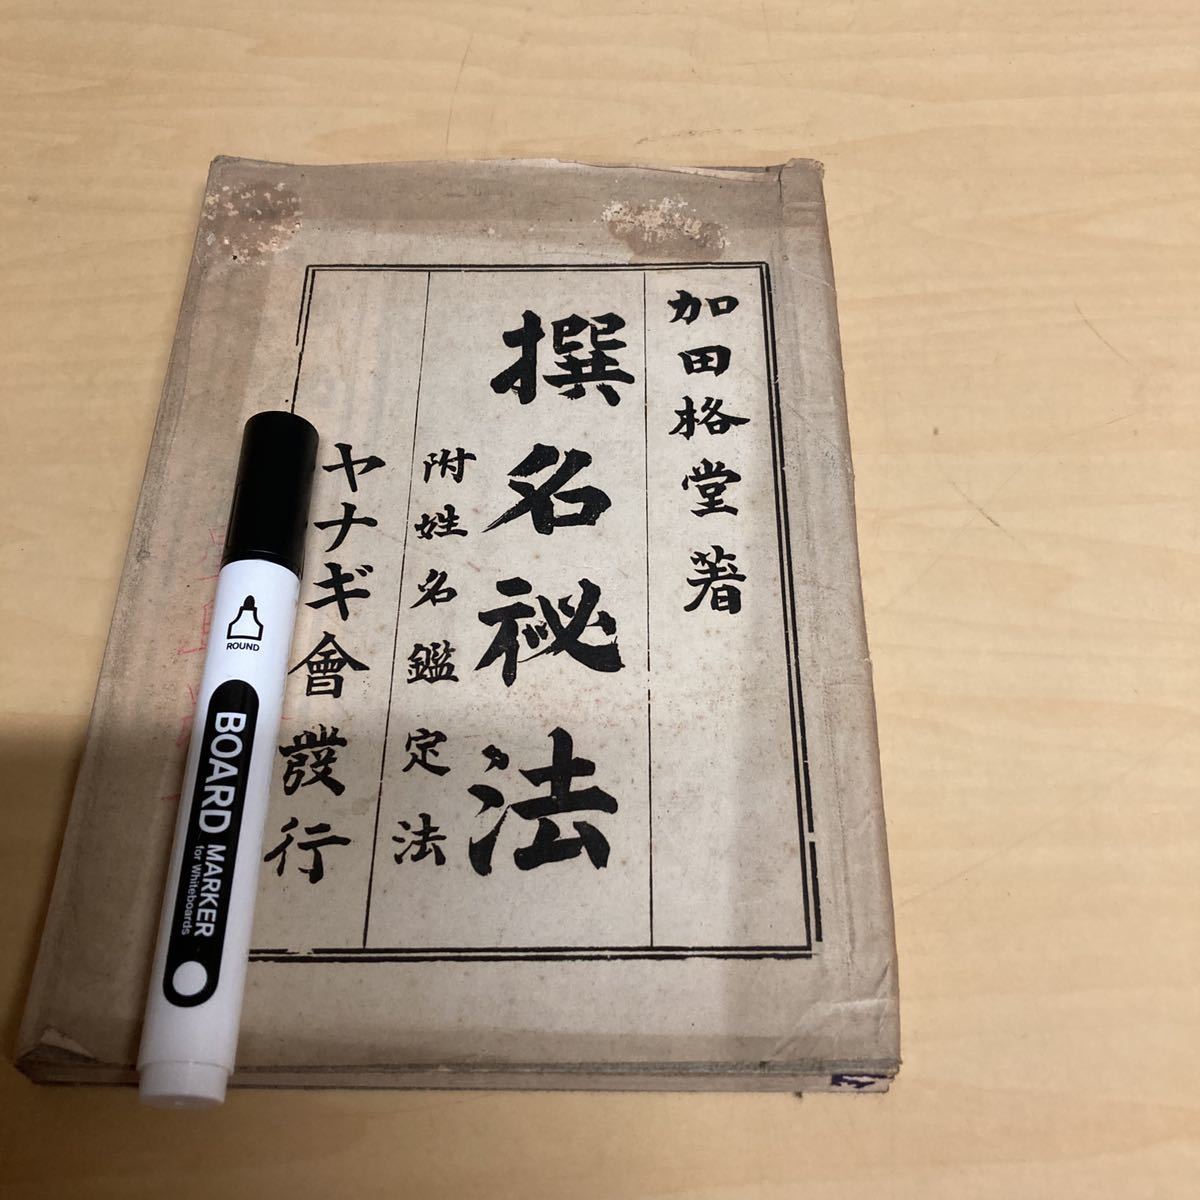 加田格堂著
撰名秘法
附姓名鑑定法
ヤナギ會發行
ROUND
BOARD MARKER
for Whiteboards